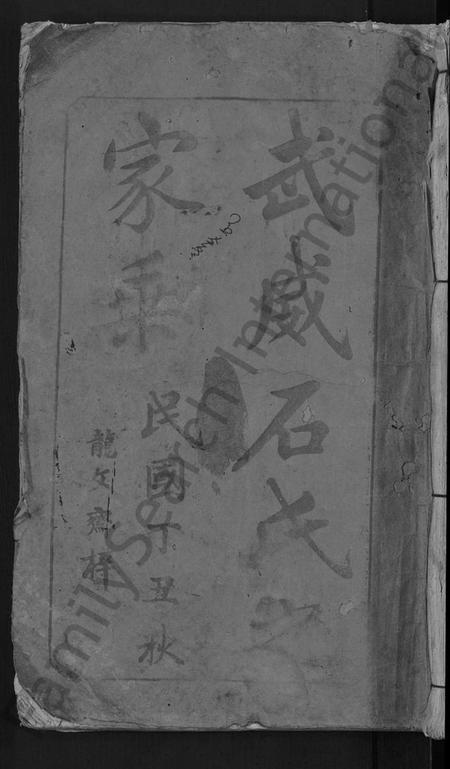 武威石氏之
家乘
民國丁丑秋
龍文齋梓
FamilySearch International